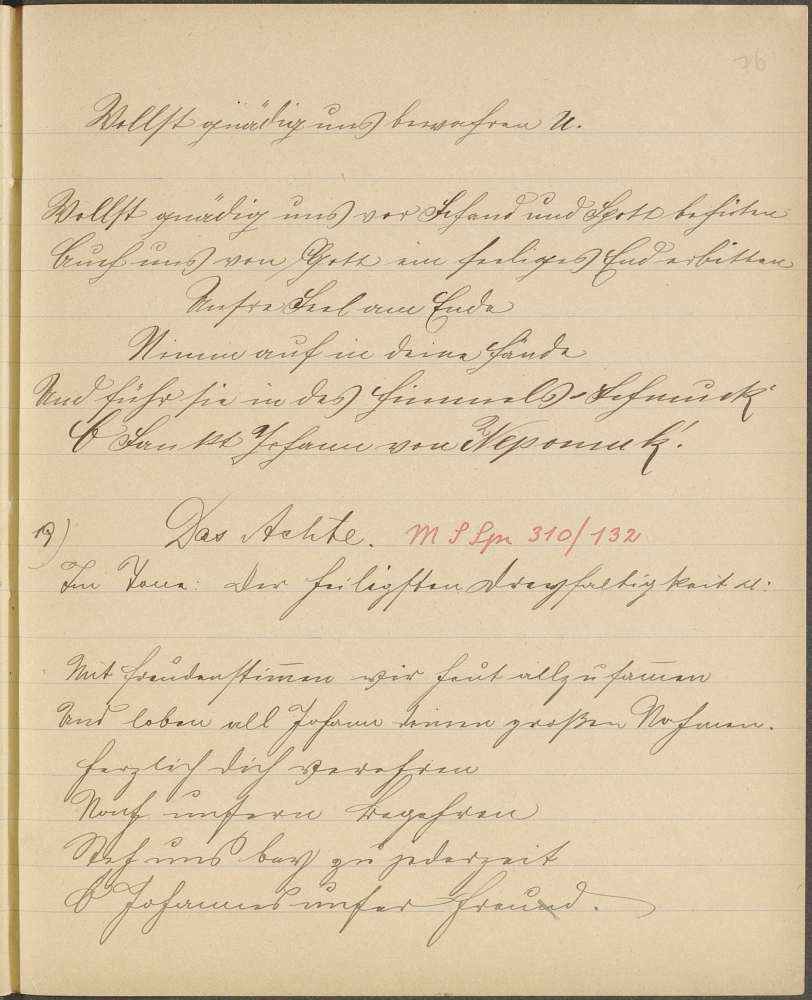 76
Wollst gnädig uns bewahren U.
Wollst gnädig uns vor Schand und Spott behüten
Auch uns von Gott ein seeliges End erbitten
Unsre Seel am Ende
Nimm auf in deine Hände
Und führ sie in des Himmels-Schmuck
O Sankt Johann von Nepomuk!
19) Das Achte. M S Spr 310/132
Im Tone: Der heiligsten Dreyfaltigkeit etc:
Mit Freudenstim̅en wir heut allzusam̅en
Und loben all Johann deinen großen Nahmen.
Herzlich dich verehren
Nach unsern Begehren
Steh uns bey zu jederzeit
O Johannes unser Freund.